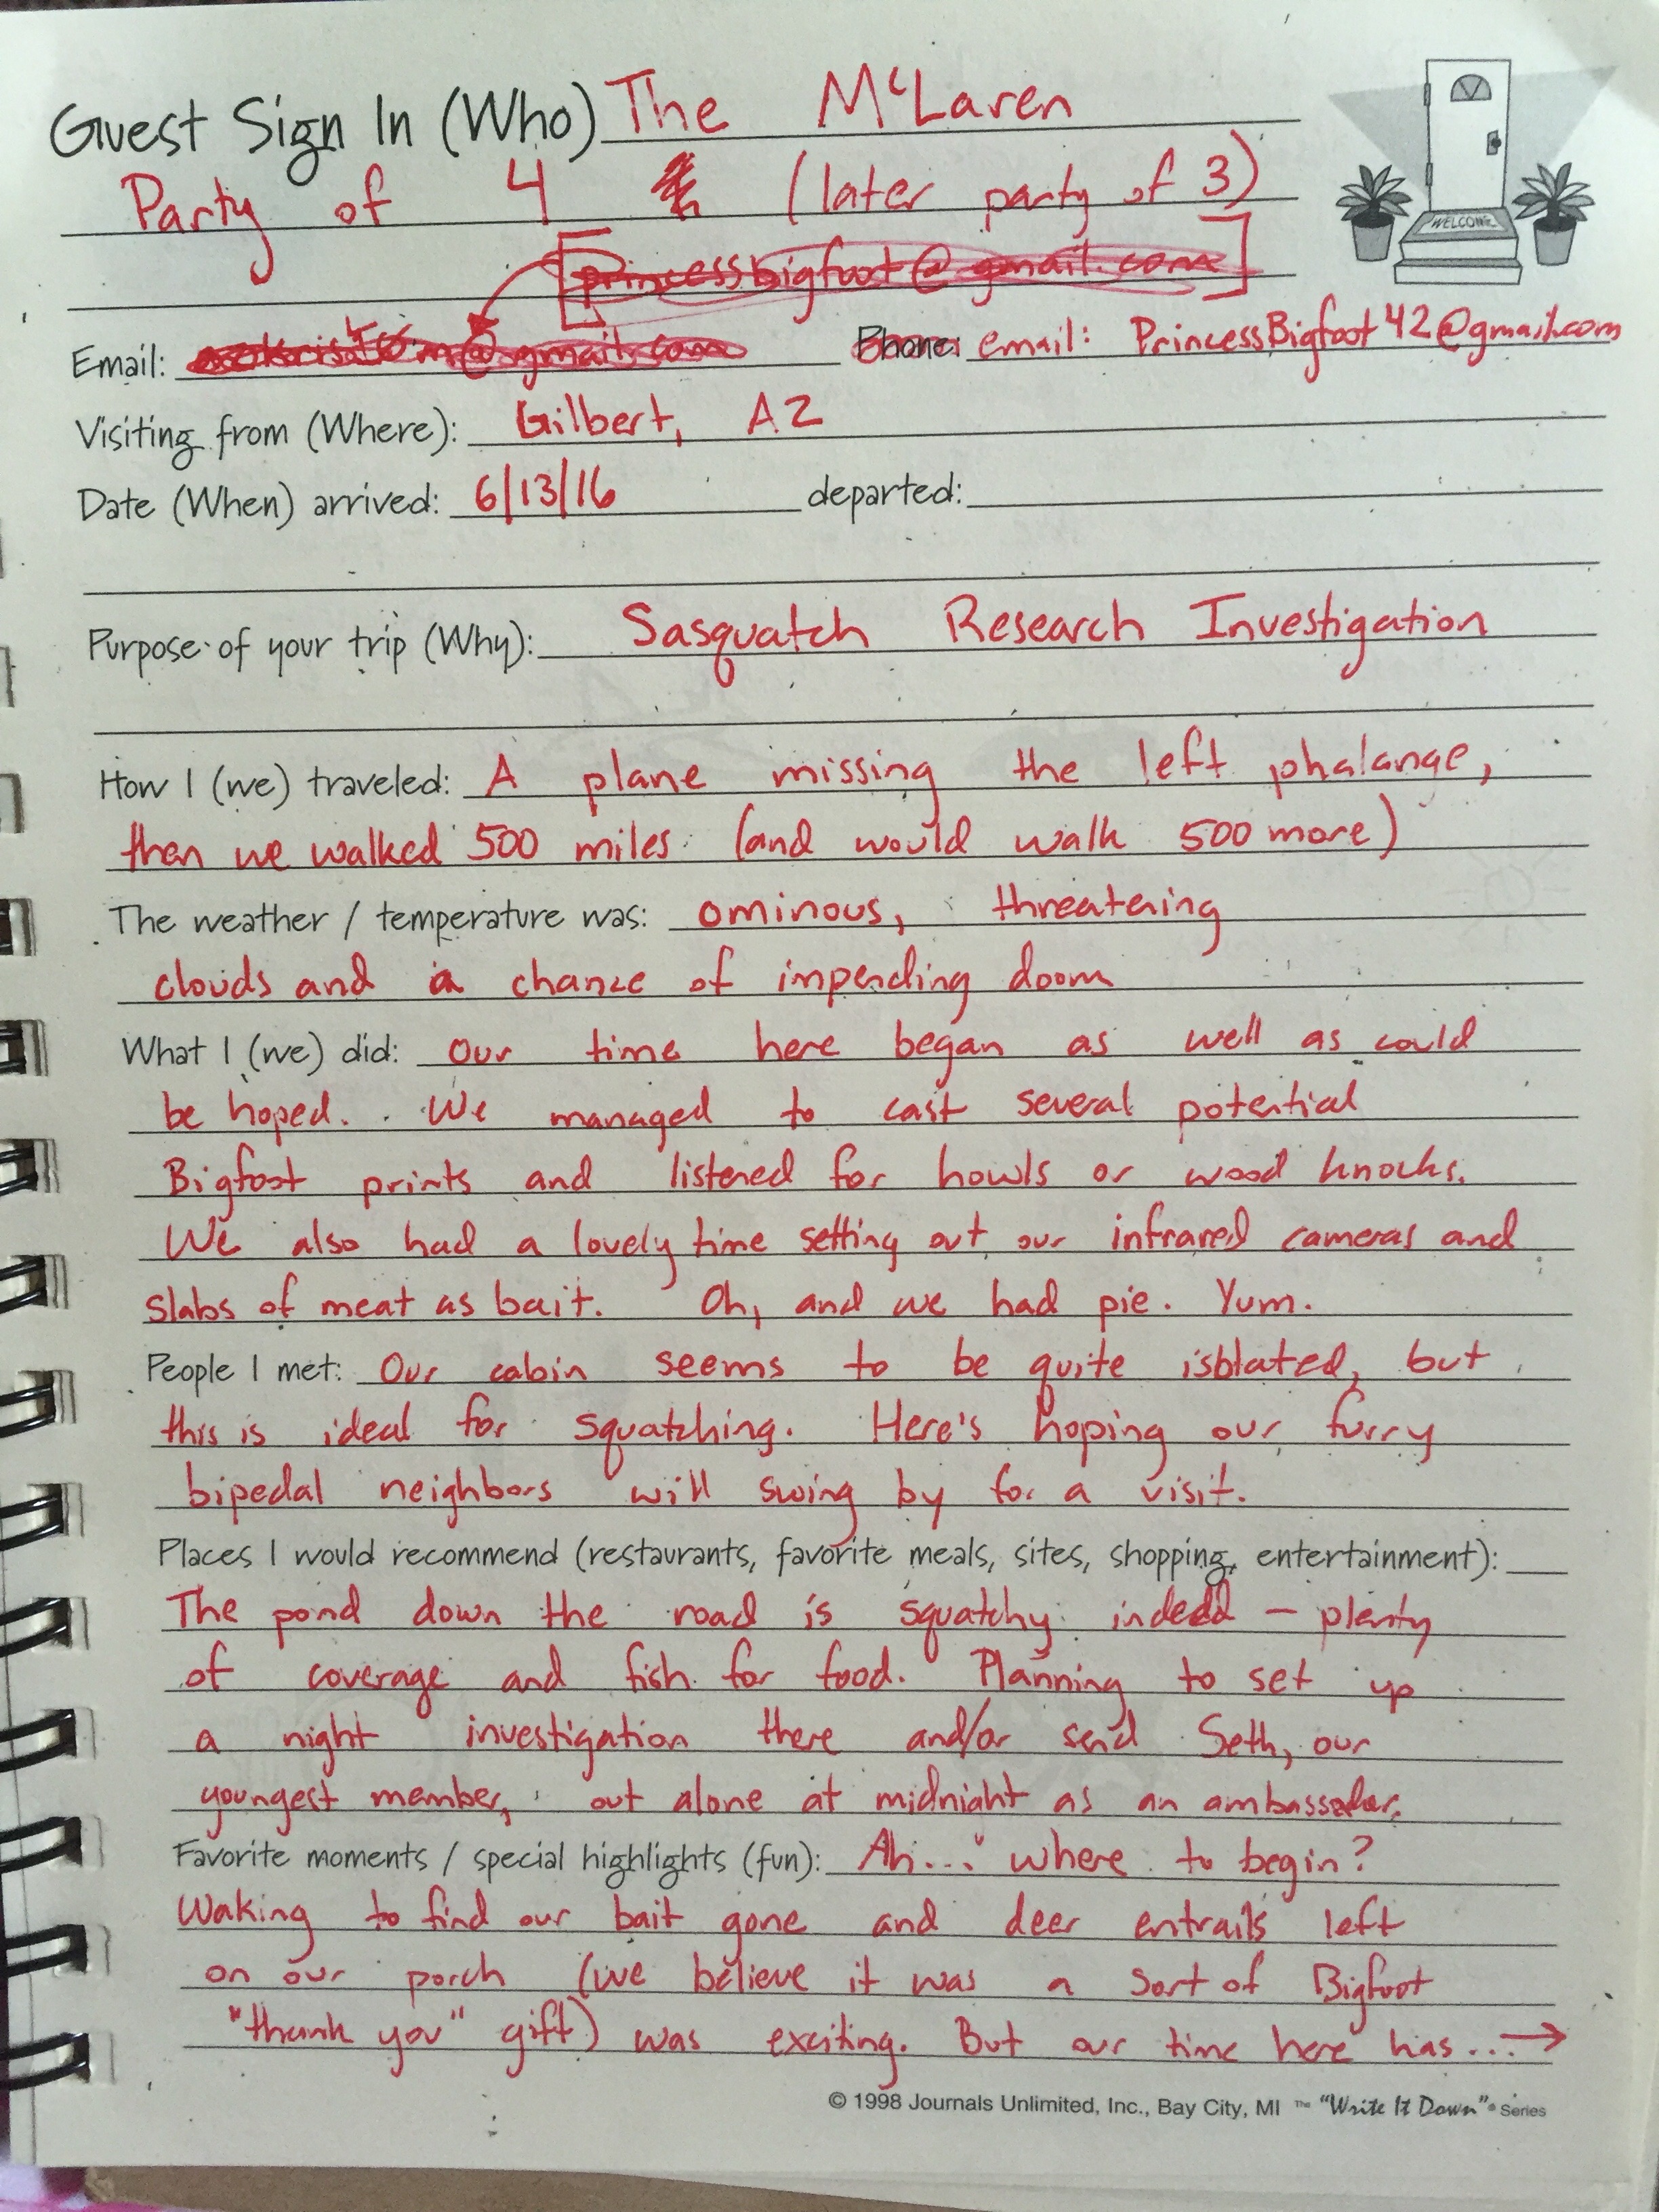 Guest Sign In (Who) The McLaren
Party of 4 (later party of 3)
WELCOME
princessbigfoot@gmail.com
Email: Phone: email: PrincessBigfoot42@gmail.com
Visiting from (Where): Gilbert, AZ
Date (When) arrived: 6/13/16 departed:
Purpose of your trip (Why): Sasquatch Research Investigation
How I (we) traveled: A plane missing the left phalange,
then we walked 500 miles (and would walk 500 more)
The weather / temperature was: ominous, threatening
clouds and a chance of impending doom
What I (we) did: Our time here began as well as could
be hoped. We managed to cast several potential
Bigfoot prints and listened for howls or wood knocks.
We also had a lovely time setting out our infrared cameras and
slabs of meat as bait. Oh, and we had pie. Yum.
People I met: Our cabin seems to be quite isolated, but
this is ideal for squatching. Here's hoping our furry
bipedal neighbors will swing by for a visit.
Places I would recommend (restaurants, favorite meals, sites, shopping, entertainment):
The pond down the road is squatchy indeed – plenty
of coverage and fish for food. Planning to set up
a night investigation there and/or send Seth, our
youngest member, out alone at midnight as an ambassador.
Favorite moments / special highlights (fun): Ah... where to begin?
Waking to find our bait gone and deer entrails left
on our porch (we believe it was a sort of Bigfoot
"thank you" gift) was exciting. But our time here has... →
© 1998 Journals Unlimited, Inc., Bay City, MI ™ "Write It Down"® Series